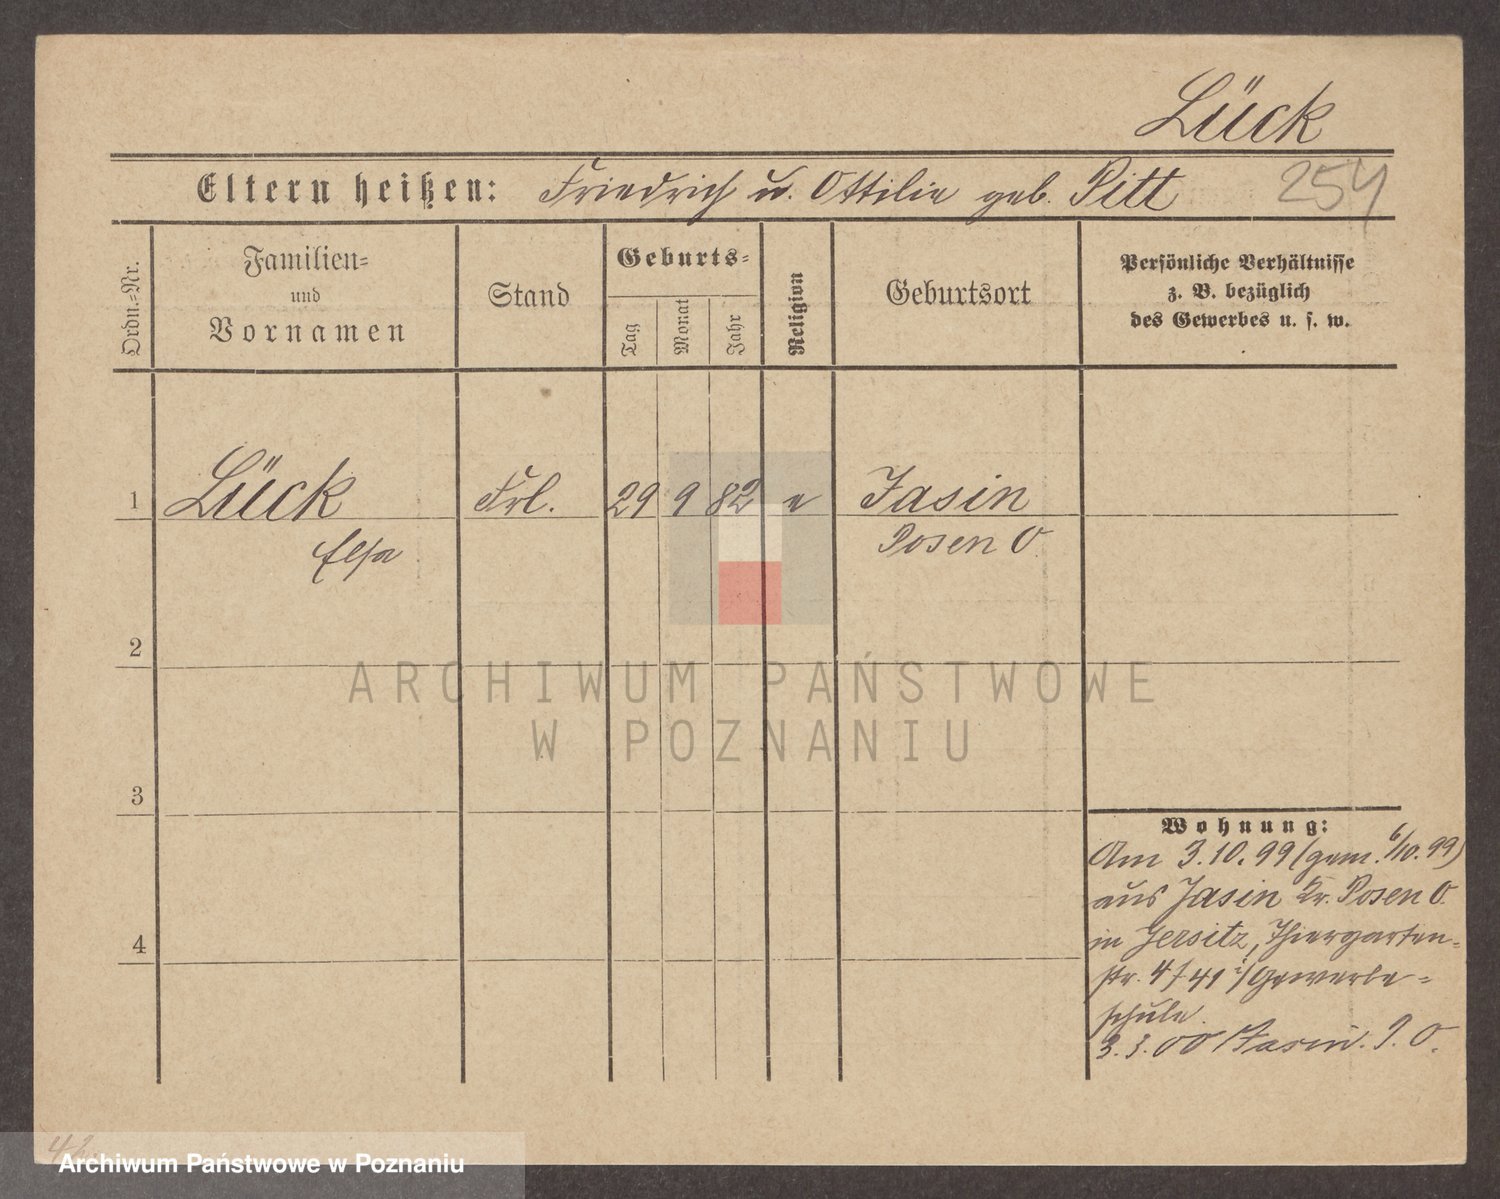 Lück
Eltern heißen: Friedrich u. Ottilie geb. Pitt 254
Ordn.-Nr.
Familien-
und
Vornamen
Stand
Geburts-
Tag
Monat
Jahr
Religion
Geburtsort
Persönliche Verhältnisse
z. B. bezüglich
des Gewerbes u. s. w.
1 Lück Frl. 29 9 82 e Jasin
Elsa Posen O
2
3
4
Wohnung:
Am 3.10.99 (gem. 6/10.99)
aus Jasin Kr. Posen O.
in Jersitz, Thiergarten-
str. 4 41 i/Gewerbe-
schule.
3.3.00 Jasin. P. O.
ARCHIWUM PAŃSTWOWE
W POZNANIU
Archiwum Państwowe w Poznaniu